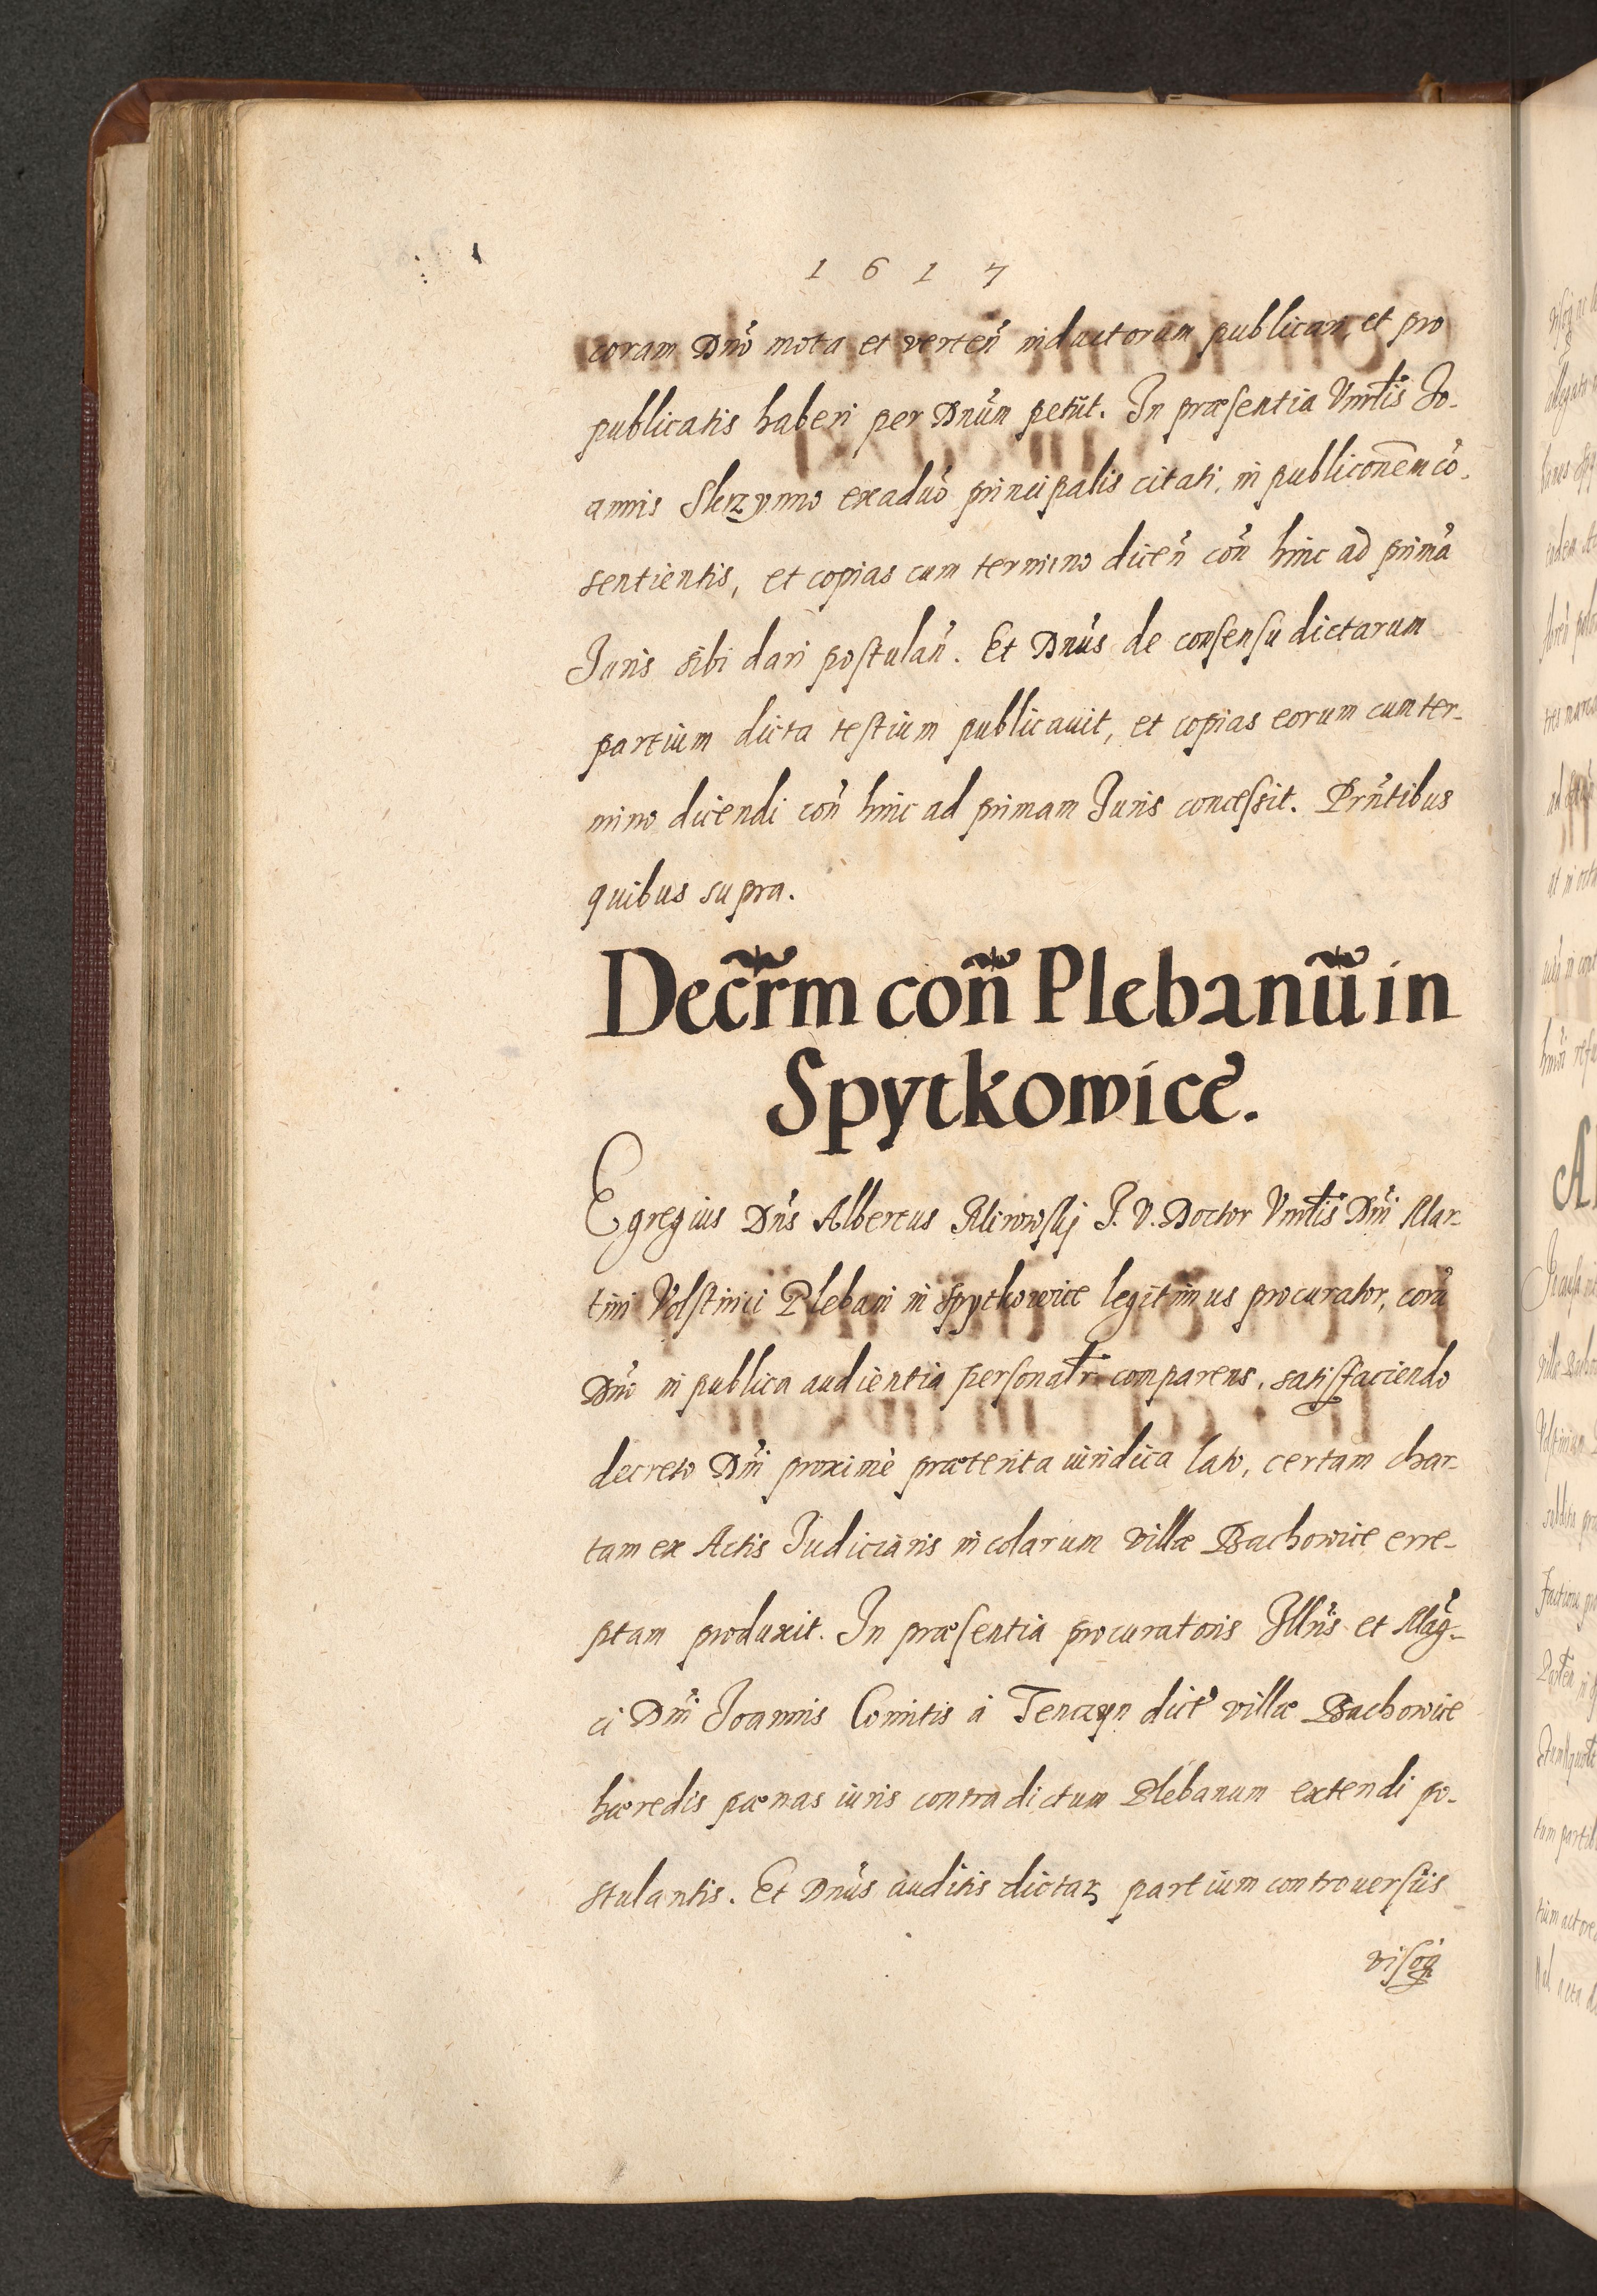 1 6 1 7
coram Dnō mota et verteñ inductorum publicari, et pro
publicatis haberi per Dnūm petiit. In præsentia Vnrlis Jo-
annis Skrzynno exaduō principalis citati, in publiconēm cō-
sentientis, et copias cum termino diceñ coñ hinc ad primā
Juris sibi dari postulañ. Et Dnūs de consensu dictarum
partium dicta testium publicauit, et copias eorum cum ter-
mino dicendi coñ hinc ad primam Juris concessit. Prñtibus
quibus supra.
Decr̃m coñ Plebanũ in
Spytkowice.
Egregius Dñs Albertus Alirowskj J. V. Doctor Vnrlis Dñi Mar-
tini Volstinii Plebani in Spytkowice legitimus procurator, corā
Dnō in publica audientia personalr comparens, satisfaciendo
decreto Dñi proximè præterita iuridica lato, certam char-
tam ex Actis Judiciaris incolarum villæ Bachowice erre-
ptam produxit. In præsentia procuratoris Illr̃is et Mag̃-
ci Dñi Joannis Comitis à Tenczyn dictę villæ Bachowice
hæredis pænas iuris contra dictum Plebanum extendi po-
stulantis. Et Dnūs auditis dictaꝝ partium controuersiis
visoꝗ